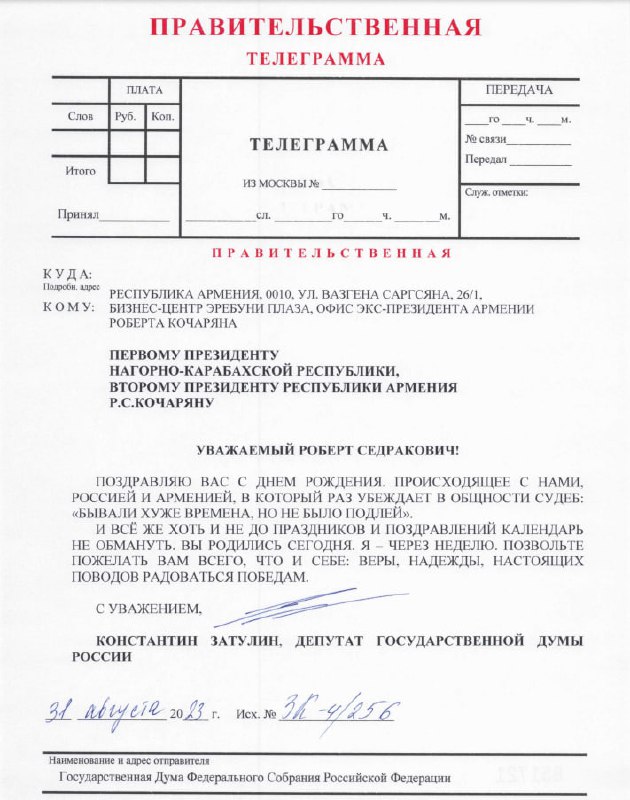 ПРАВИТЕЛЬСТВЕННАЯ
ТЕЛЕГРАММА
ПЛАТА
Слов Руб. Коп.
Итого
Принял
ТЕЛЕГРАММА
ИЗ МОСКВЫ №
сл. го ч. м.
ПЕРЕДАЧА
го ч. м.
№ связи
Передал
Служ. отметки:
ПРАВИТЕЛЬСТВЕННАЯ
КУДА:
Подробн. адрес
РЕСПУБЛИКА АРМЕНИЯ, 0010, УЛ. ВАЗГЕНА САРГСЯНА, 26/1,
КОМУ: БИЗНЕС-ЦЕНТР ЭРЕБУНИ ПЛАЗА, ОФИС ЭКС-ПРЕЗИДЕНТА АРМЕНИИ
РОБЕРТА КОЧАРЯНА
ПЕРВОМУ ПРЕЗИДЕНТУ
НАГОРНО-КАРАБАХСКОЙ РЕСПУБЛИКИ,
ВТОРОМУ ПРЕЗИДЕНТУ РЕСПУБЛИКИ АРМЕНИЯ
Р.С.КОЧАРЯНУ
УВАЖАЕМЫЙ РОБЕРТ СЕДРАКОВИЧ!
ПОЗДРАВЛЯЮ ВАС С ДНЕМ РОЖДЕНИЯ. ПРОИСХОДЯЩЕЕ С НАМИ,
РОССИЕЙ И АРМЕНИЕЙ, В КОТОРЫЙ РАЗ УБЕЖДАЕТ В ОБЩНОСТИ СУДЕБ:
«БЫВАЛИ ХУЖЕ ВРЕМЕНА, НО НЕ БЫЛО ПОДЛЕЙ».
И ВСЁ ЖЕ ХОТЬ И НЕ ДО ПРАЗДНИКОВ И ПОЗДРАВЛЕНИЙ КАЛЕНДАРЬ
НЕ ОБМАНУТЬ. ВЫ РОДИЛИСЬ СЕГОДНЯ. Я – ЧЕРЕЗ НЕДЕЛЮ. ПОЗВОЛЬТЕ
ПОЖЕЛАТЬ ВАМ ВСЕГО, ЧТО И СЕБЕ: ВЕРЫ, НАДЕЖДЫ, НАСТОЯЩИХ
ПОВОДОВ РАДОВАТЬСЯ ПОБЕДАМ.
С УВАЖЕНИЕМ,
КОНСТАНТИН ЗАТУЛИН, ДЕПУТАТ ГОСУДАРСТВЕННОЙ ДУМЫ
РОССИИ
31 августа 2023 г. Исх. № ЗК-4/256
Наименование и адрес отправителя
Государственная Дума Федерального Собрания Российской Федерации